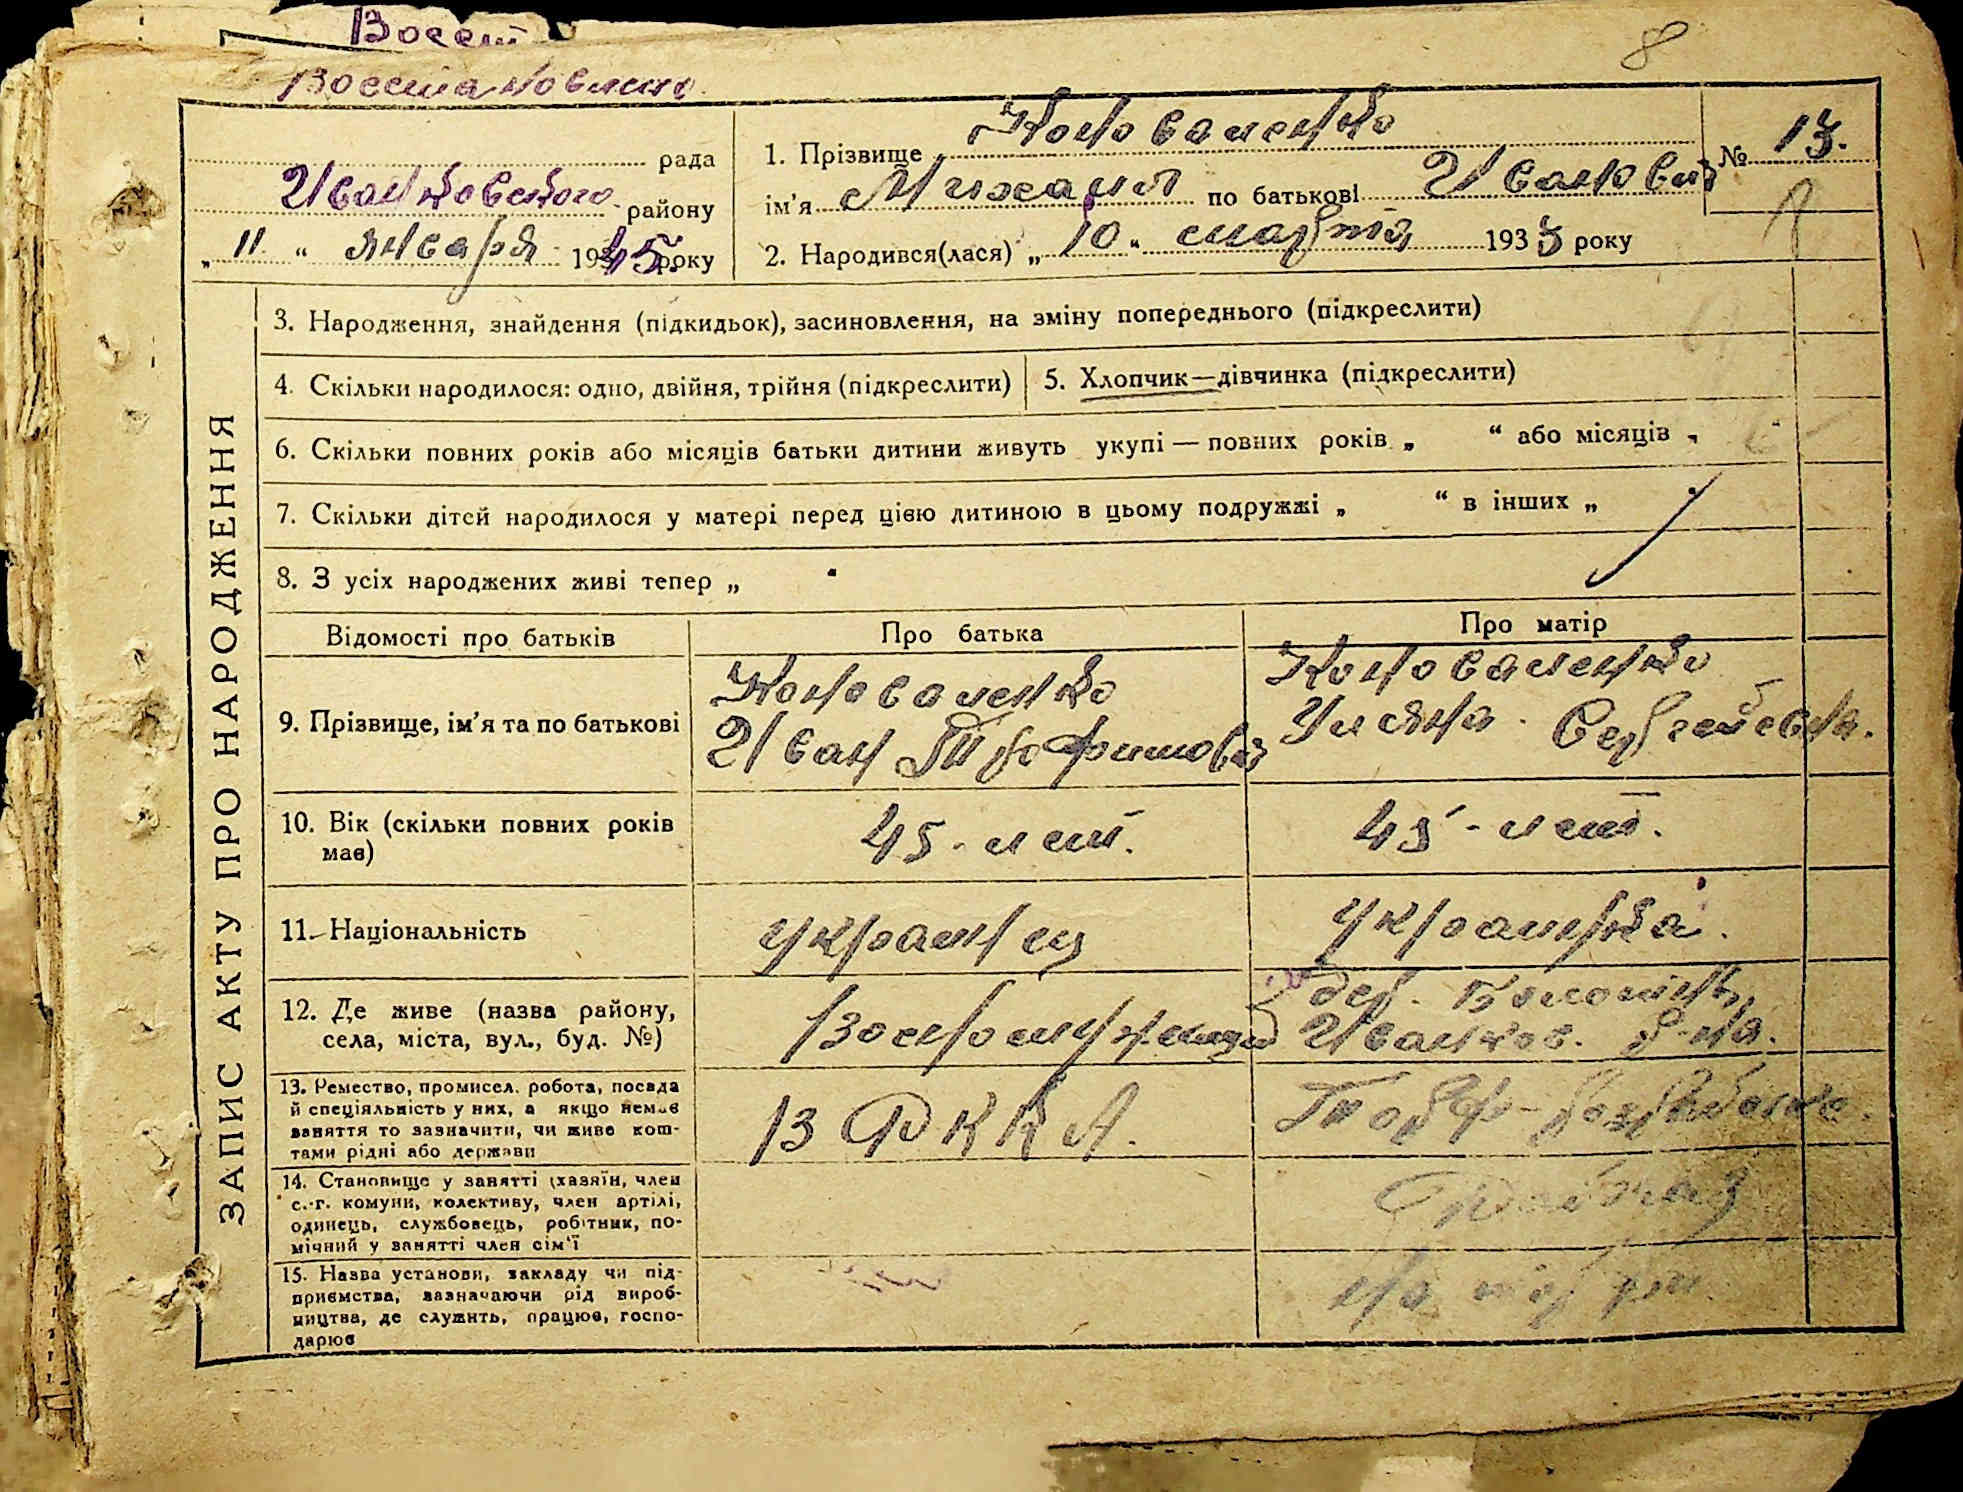 Восст
8
Восстановлено.
рада
Иванковского району
„ 11 “ января 1945 року
1. Прізвище Коноваленко
ім’я Михаил по батькові Иванович
2. Народився(лася) „ 10 “ марта 1933 року
№ 13.
ЗАПИС АКТУ ПРО НАРОДЖЕННЯ
3. Народження, знайдення (підкидьок), засиновлення, на зміну попереднього (підкреслити)
4. Скільки народилося: одно, двійня, трійня (підкреслити)
5. Хлопчик—дівчинка (підкреслити)
6. Скільки повних років або місяців батьки дитини живуть укупі — повних років „ “ або місяців „
7. Скільки дітей народилося у матері перед цією дитиною в цьому подружжі „ “ в інших „
8. З усіх народжених живі тепер „ “
Відомості про батьків
Про батька
Про матір
9. Прізвище, ім’я та по батькові
Коноваленко
Иван Трофимович
Коноваленко
Ульяна Сергеевна.
10. Вік (скільки повних років
має)
45 - лет.
45 - лет.
11. Національність
украинец
украинка.
12. Де живе (назва району,
села, міста, вул., буд. №)
Военнослужащий
дер.
Иванков. р-на.
13. Ремество, промисел, робота, посада
й спеціяльність у них, а якщо немає
заняття то зазначити, чи живе кош-
тами рідні або держави
В РККА.
14. Становище у занятті (хазяїн, член
с.-г. комуни, колективу, член артілі,
одинець, службовець, робітник, по-
мічний у занятті член сім’ї
15. Назва установи, закладу чи під-
приємства, зазначаючи рід вироб-
ництва, де служить, працює, госпо-
дарює